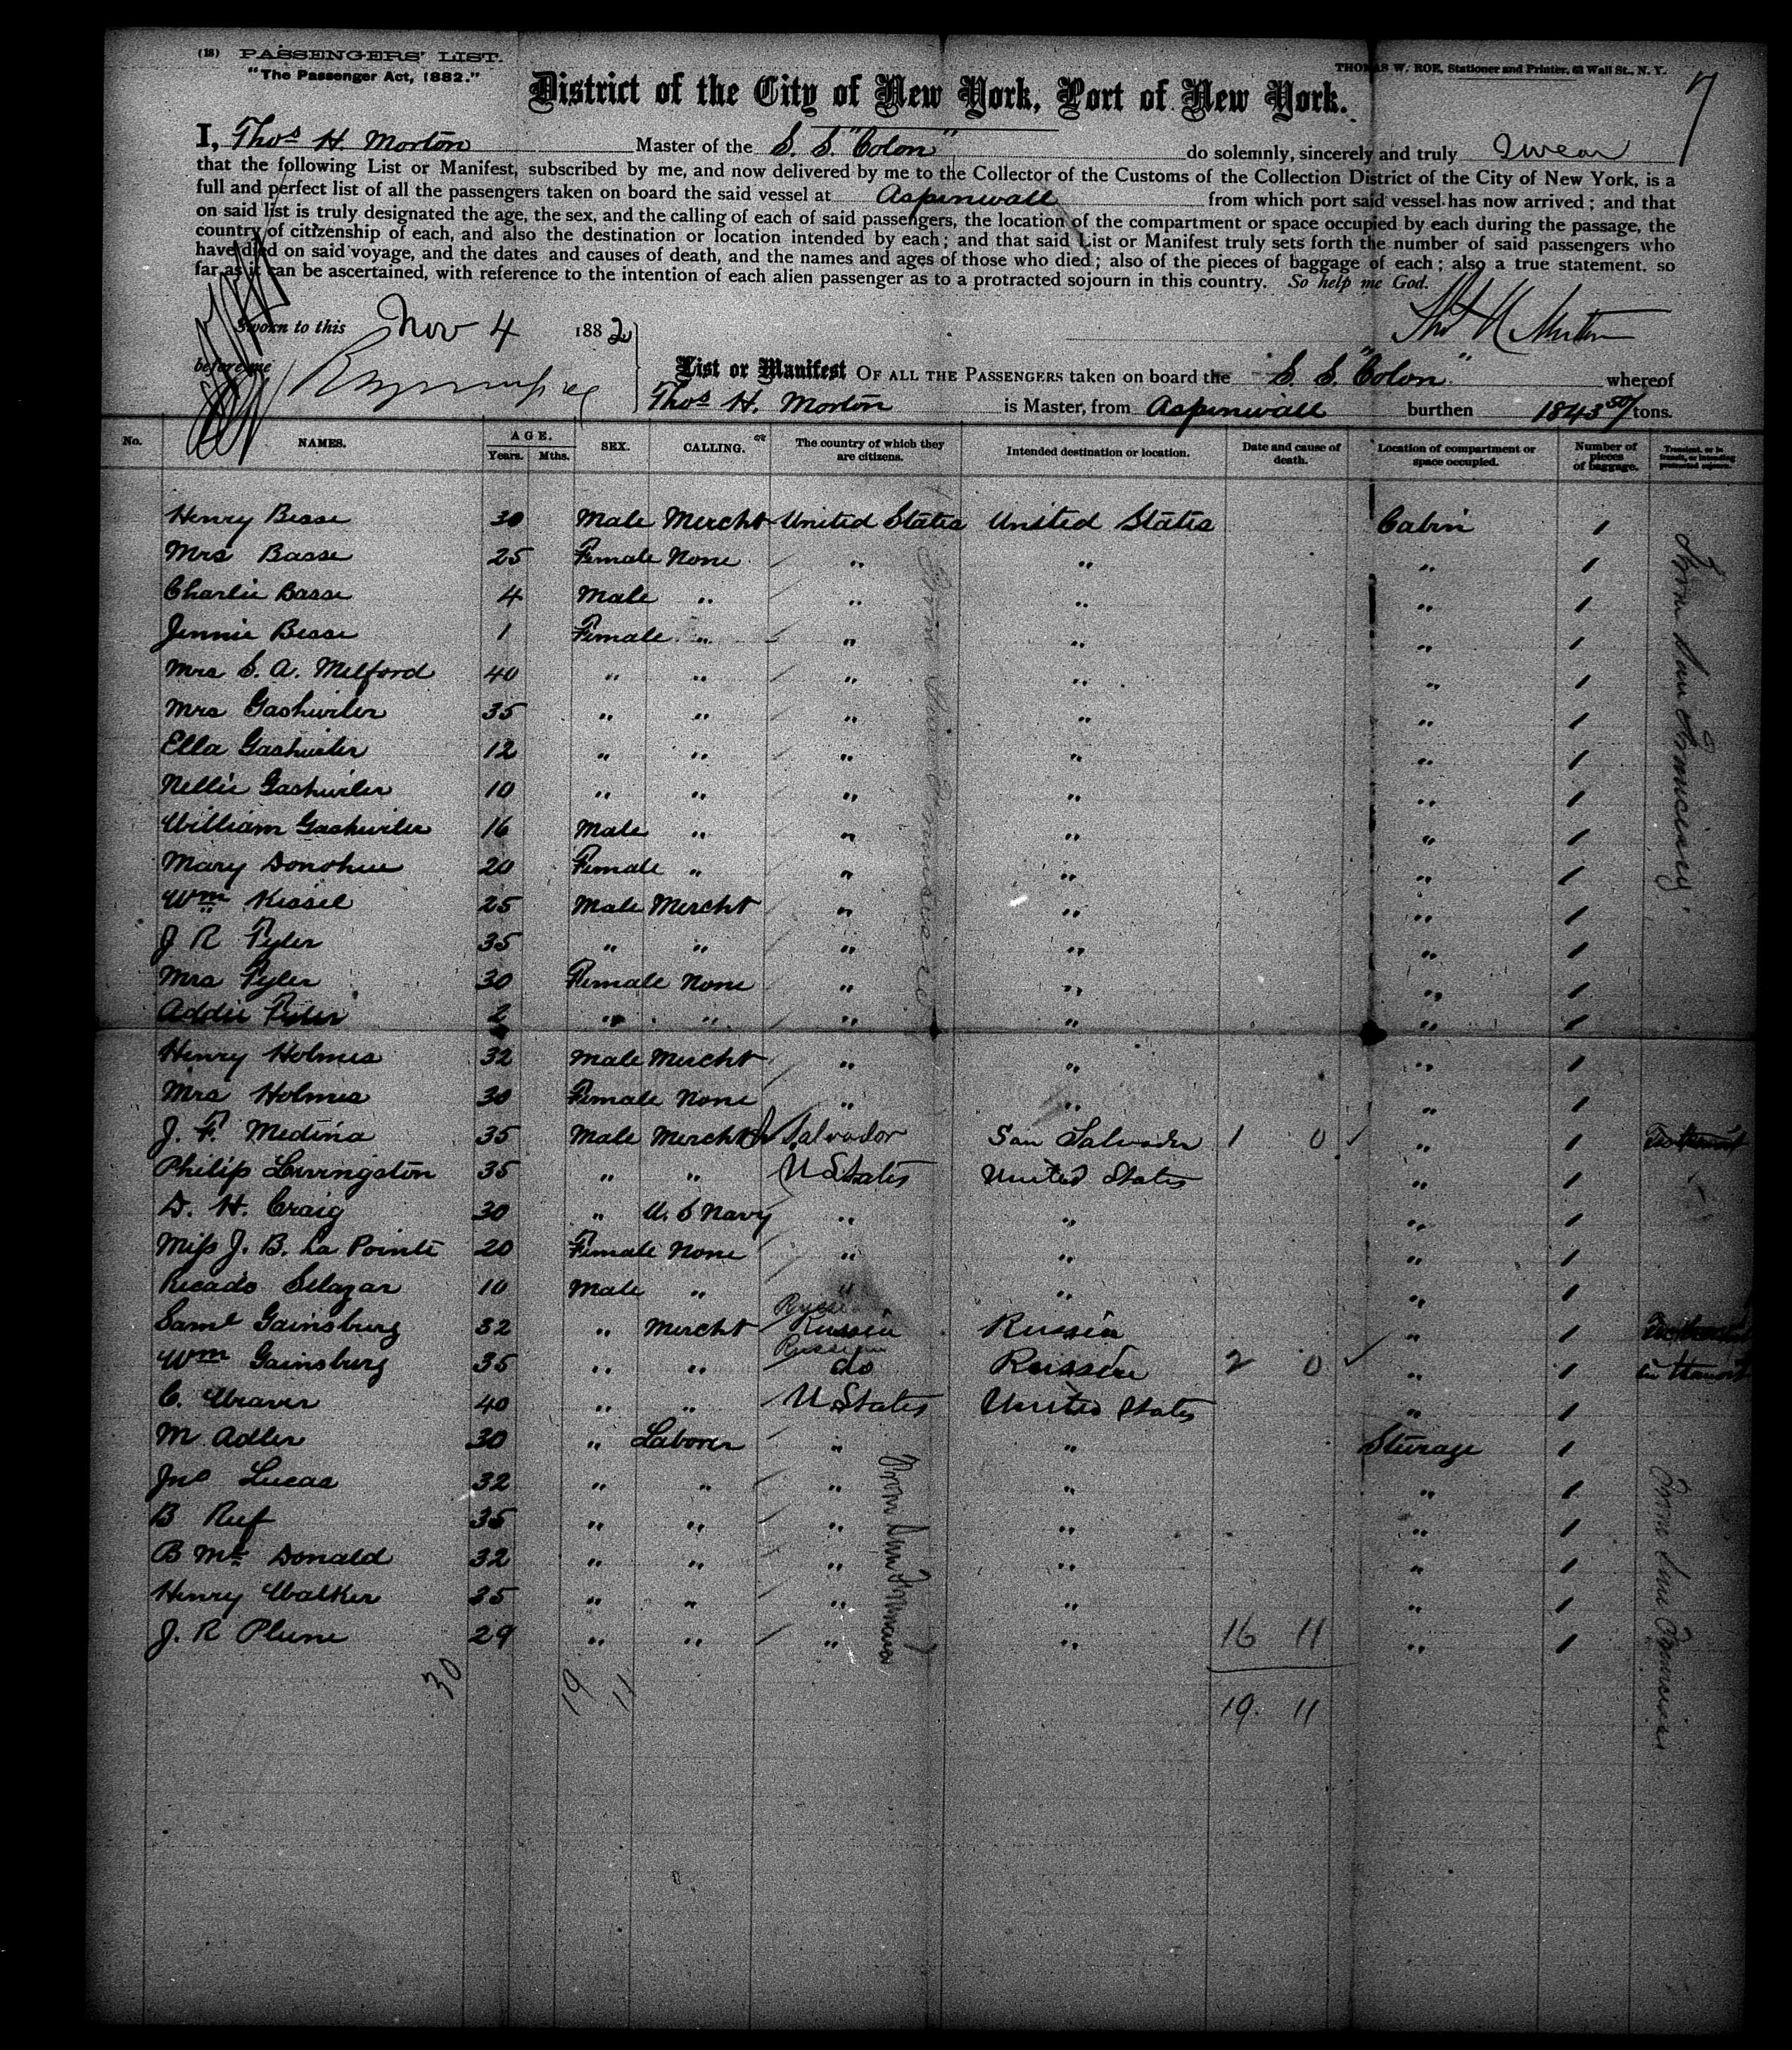 (18) PASSENGERS' LIST.
"The Passenger Act, 1882."
THOMAS W. ROE, Stationer and Printer, 61 Wall St., N. Y.
7
District of the City of New York, Port of New York.
I, Thos H. Morton Master of the S. S. "Colon" do solemnly, sincerely and truly swear
that the following List or Manifest, subscribed by me, and now delivered by me to the Collector of the Customs of the Collection District of the City of New York, is a
full and perfect list of all the passengers taken on board the said vessel at Aspinwall from which port said vessel has now arrived; and that
on said list is truly designated the age, the sex, and the calling of each of said passengers, the location of the compartment or space occupied by each during the passage, the
country of citizenship of each, and also the destination or location intended by each; and that said List or Manifest truly sets forth the number of said passengers who
have died on said voyage, and the dates and causes of death, and the names and ages of those who died; also of the pieces of baggage of each; also a true statement, so
far as it can be ascertained, with reference to the intention of each alien passenger as to a protracted sojourn in this country. So help me God.
Thos H Morton
Sworn to this Nov 4 1882
before me
List or Manifest OF ALL THE PASSENGERS taken on board the S. S. "Colon" whereof
Thos H. Morton is Master, from Aspinwall burthen 1843 50/ tons.
No. NAMES. AGE. Years. Mths. SEX. CALLING. The country of which they are citizens. Intended destination or location. Date and cause of death. Location of compartment or space occupied. Number of pieces of baggage. Transient, or in transit, or intending protracted sojourn.
Henry Besse 30 Male Mercht United States United States Cabin 1
Mrs Basse 25 Female None " " " 1
Charlie Basse 4 Male " " " " 1
Jennie Besse 1 Female " " " " 1
Mrs S. A. Milford 40 " " " " " 1
Mrs Gashwiler 35 " " " " " 1
Ella Gashwiler 12 " " " " " 1
Nellie Gashwiler 10 " " " " " 1
William Gashwiler 16 Male " " " " 1
Mary Donohue 20 Female " " " " 1
Wm Kissel 25 Male Mercht " " " 1
J R Tyler 35 " " " " " 1
Mrs Tyler 30 Female None " " " 1
Addie Tyler 2 " " " " " 1
Henry Holmes 32 Male Mercht " " " 1
Mrs Holmes 30 Female None " " " 1
J. F. Medina 35 Male Mercht Salvador San Salvador 1 0 " 1
Philip Livingston 35 " " U States United States " 1
D. H. Craig 30 " U. S Navy " " " 1
Miss J. B. La Pointe 20 Female None " " " 1
Ricado Selazar 10 Male " " " " 1
Saml Gainsburg 32 " Mercht Russia Russia " 1
Wm Gainsburg 35 " " do Russia 2 0 " 1 in transit
C. Weaver 40 " " U. States United States " 1
M Adler 30 " Laborer " " Steerage 1
Jno Lucas 32 " " " " " 1
B Ruf 35 " " " " " 1
B Mc Donald 32 " " " " " 1
Henry Walker 35 " " " " " 1
J. R Plume 29 " " " " 16 11 " 1
30 19 11 19. 11
From San Francisco
From San Francisco
From San Francisco
From San Francisco